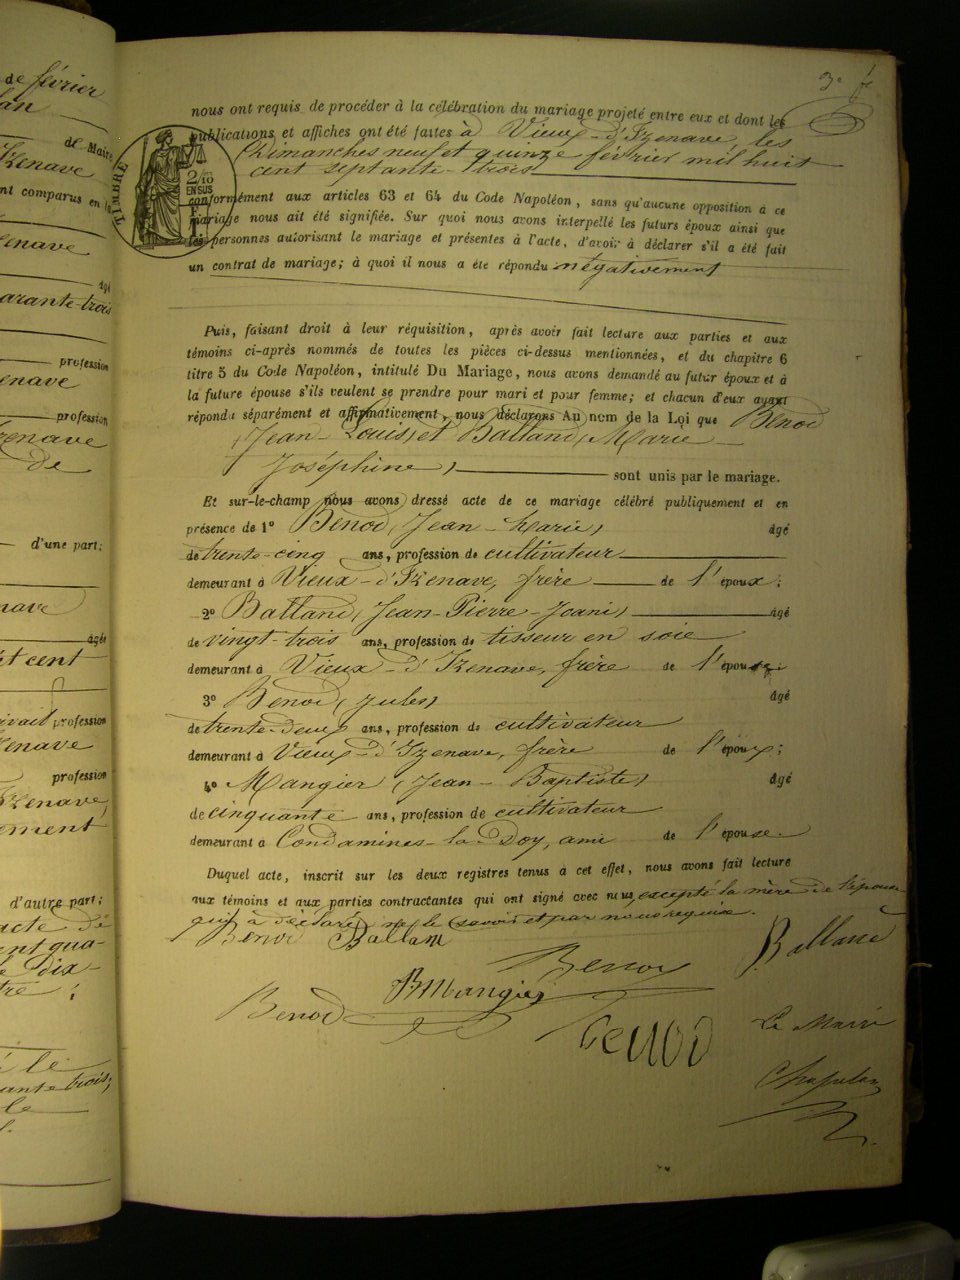 de février
de Maire
Izenave
nt comparus en la
enave
âgé
arante-trois
profession
enave
profession
zenave
de
d'une part;
nave
âgée
et cent
profession
enave
profession
zenave,
ement
d'autre part;
acte de
ent qua-
le dix-
tre ;
le
ante trois;
le
3e fe
nous ont requis de procéder à la célébration du mariage projeté entre eux et dont les
publications et affiches ont été faites à Vieux-d'Izenave les
Dimanches neuf et quinze février mil huit
cent septante-trois
TIMBRE
2/10
EN SUS
conformément aux articles 63 et 64 du Code Napoléon, sans qu'aucune opposition à ce
mariage nous ait été signifiée. Sur quoi nous avons interpellé les futurs époux ainsi que
les personnes autorisant le mariage et présentes à l'acte, d'avoir à déclarer s'il a été fait
un contrat de mariage; à quoi il nous a été répondu négativement
Puis, faisant droit à leur réquisition, après avoir fait lecture aux parties et aux
témoins ci-après nommés de toutes les pièces ci-dessus mentionnées, et du chapitre 6
titre 5 du Code Napoléon, intitulé Du Mariage, nous avons demandé au futur époux et à
la future épouse s'ils veulent se prendre pour mari et pour femme; et chacun d'eux ayant
répondu séparément et affirmativement, nous déclarons Au nom de la Loi que Benod
(Jean-Louis) et Balland, (Marie
Joséphine) sont unis par le mariage.
Et sur-le-champ nous avons dressé acte de ce mariage célébré publiquement et en
présence de 1° Benod (Jean-Marie) âgé
de trente-cinq ans, profession de cultivateur
demeurant à Vieux-d'Izenave, frère de l'époux;
2° Balland, (Jean-Pierre-Joani) âgé
de vingt-trois ans, profession de tisseur en soie
demeurant à Vieux-d'Izenave, frère de l'épouse;
3° Benod, (Jules) âgé
de trente-deux ans, profession de cultivateur
demeurant à Vieux-d'Izenave, frère de l'époux;
4° Mangier (Jean-Baptiste) âgé
de cinquante ans, profession de cultivateur
demeurant à Condamines-la-Doy, ami de l'épouse.
Duquel acte, inscrit sur les deux registres tenus à cet effet, nous avons fait lecture
aux témoins et aux parties contractantes qui ont signé avec nous excepté la mère de l'époux
qui a déclaré ne le savoir et par nous requise.
Benod Balland
Benod Balland
Benod BMangier
Benod
Le Maire
Chapelan